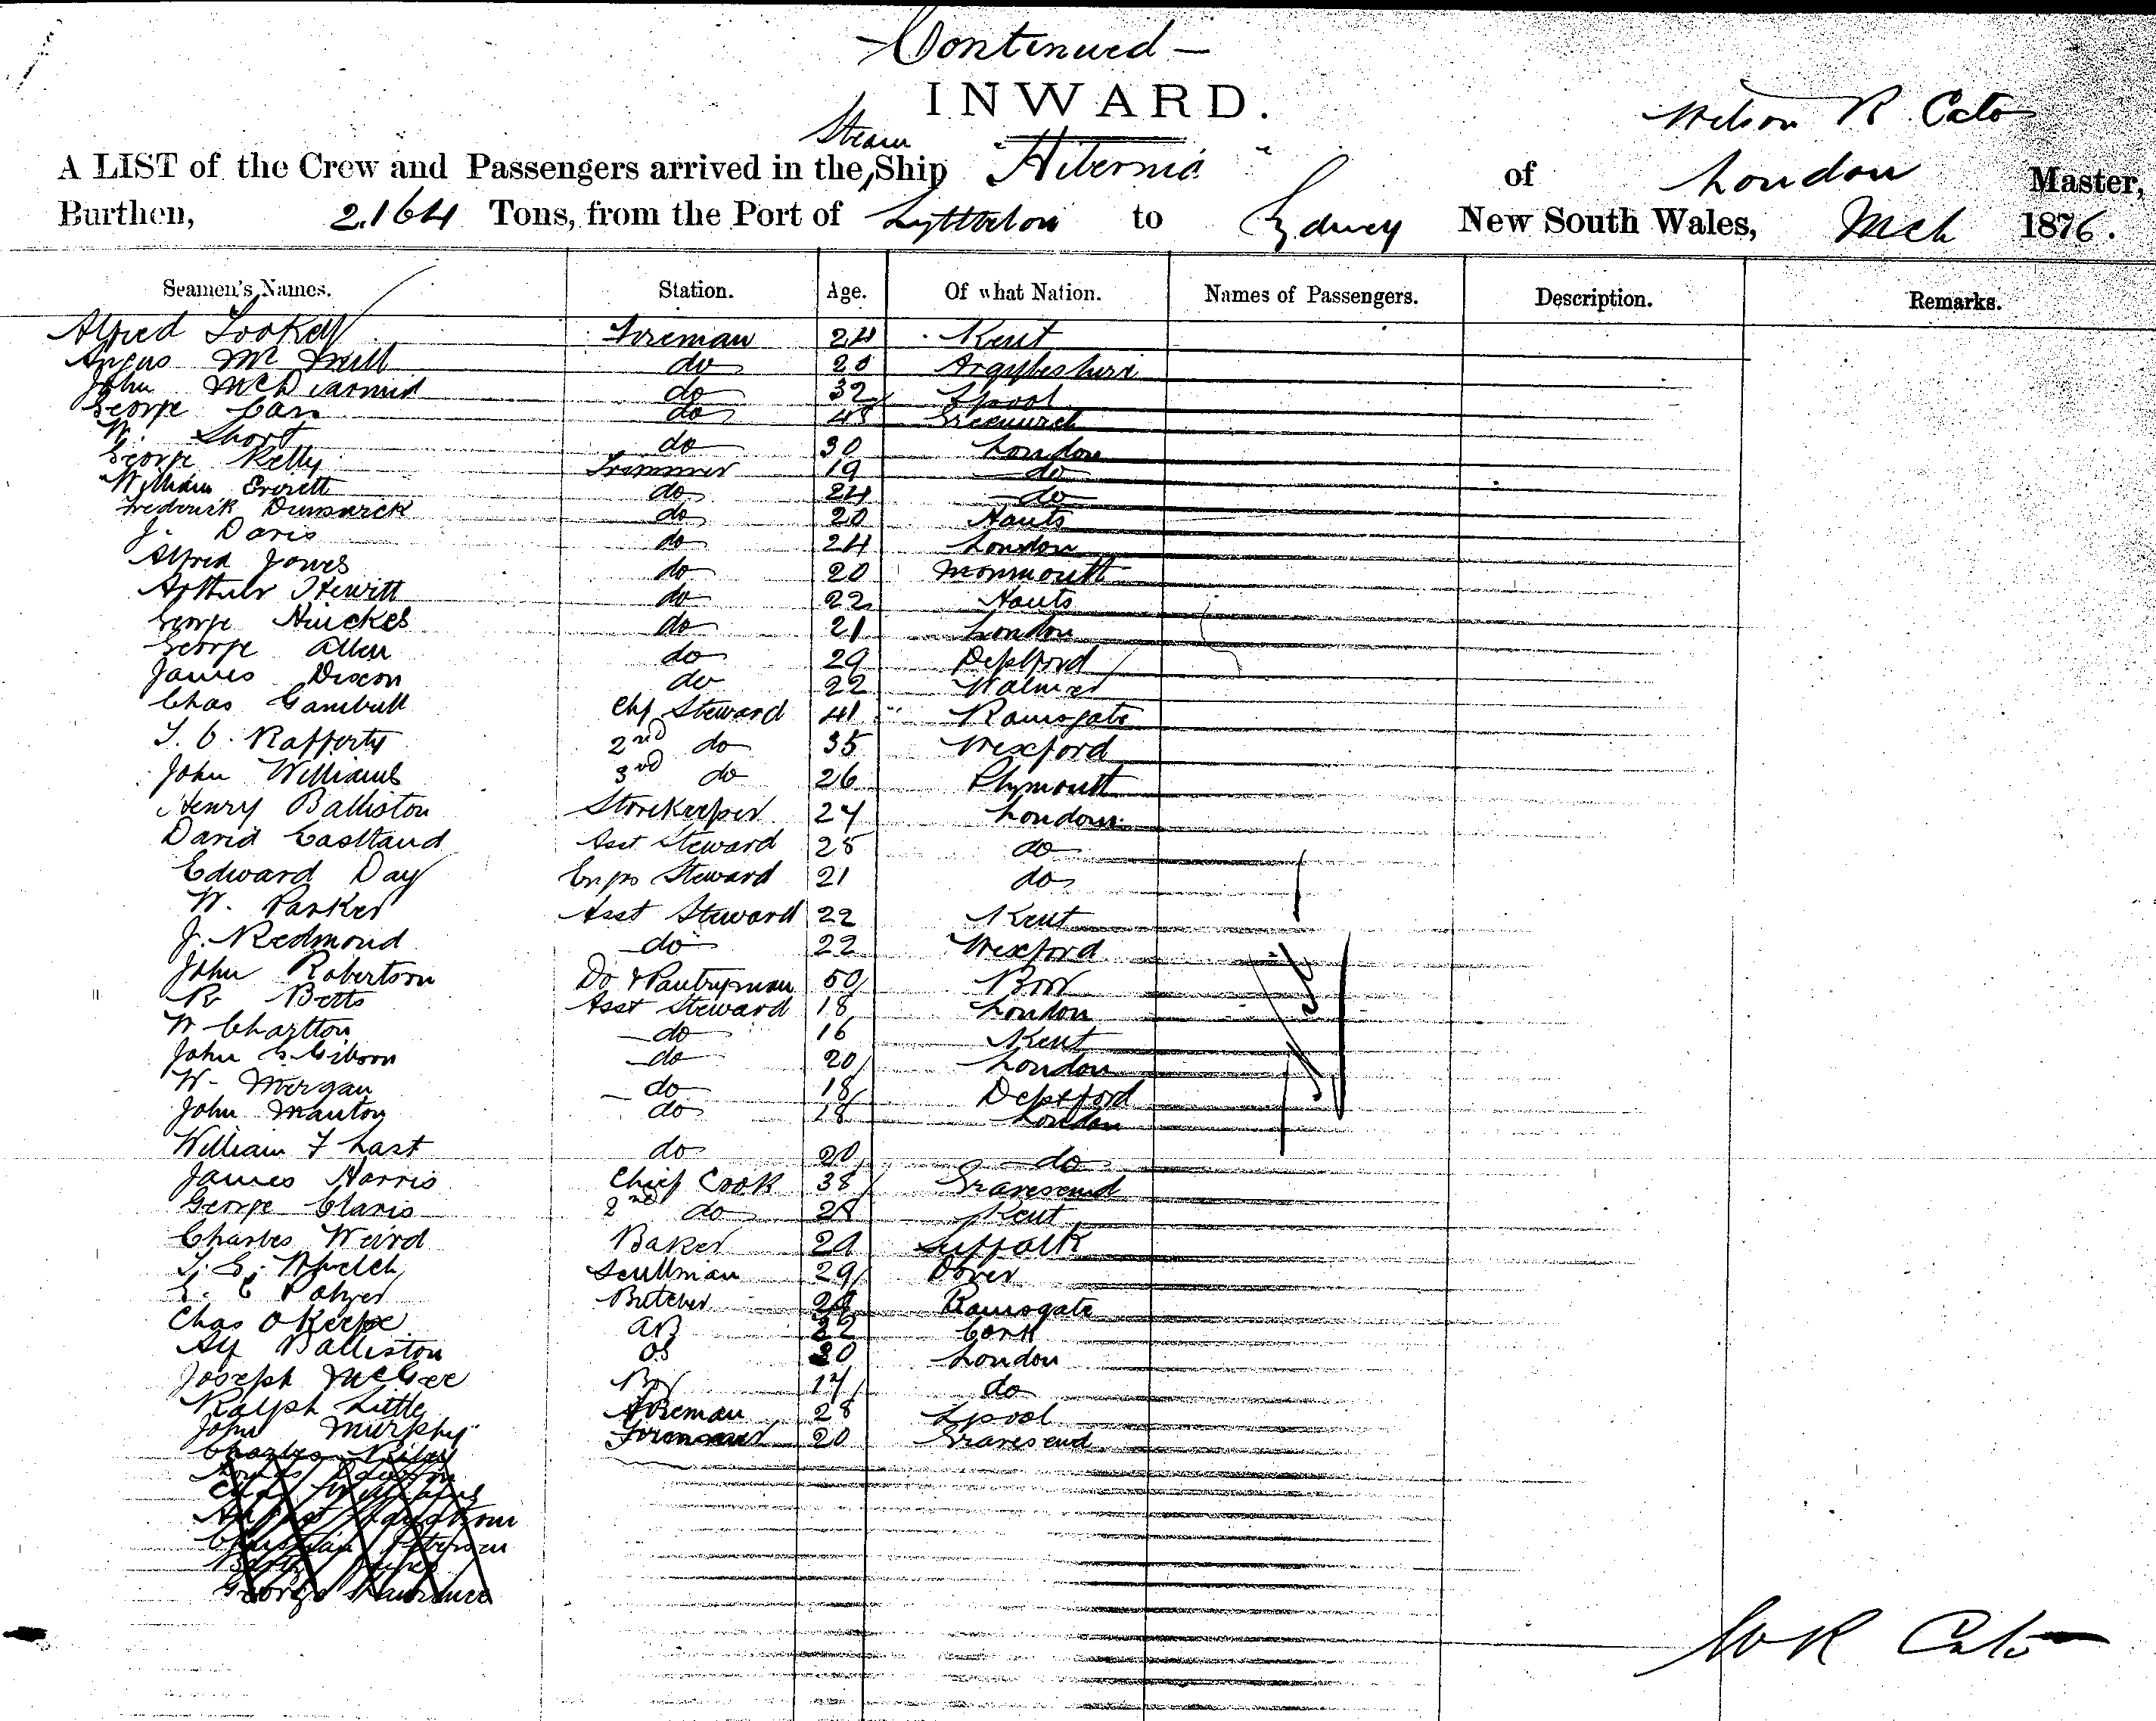 - Continued -
INWARD.
Wilson R. Cato
A LIST of the Crew and Passengers arrived in the Steam Ship "Hibernia" of London Master,
Burthen, 2,164 Tons, from the Port of Lyttelton to Sydney New South Wales, Mch 1876.
Seamen's Names. Station. Age. Of what Nation. Names of Passengers. Description. Remarks.
Alfred Fireman 24 Kent
Angus Mc do Argyleshire
John McDiarmid do 32 Lpool
George Carr do 48 Greenwich
W. Short do 30 London
George Kelly Trimmer 19 do
William Everett do 24 do
Frederick do 20 Hants
J. Davis do 24 London
Alfred Jones do 20 Monmouth
Arthur Hewitt do 22 Hants
George do 21 London
George Allen do 29 Deptford
James Dixon do 22 Walmer
Chas Gambrill Chf Steward 41 Ramsgate
T. C. Rafferty 2nd do 35 Wexford
John Williams 3rd do 26 Plymouth
Henry Balliston Storekeeper 24 London
David Eastland Asst Steward 25 do
Edward Day Steward 21 do
W. Parker Asst Steward 22 Kent
J. Redmond do 22 Wexford
John Robertson Do & Pantryman 50 Bow
R Betts Asst Steward 18 London
W Charlton do 16 Kent
John G. Gibson do 20 London
W. Morgan do 18 Deptford
John Manton do 18 London
William F Last do 20 do
James Harris Chief Cook 38 Gravesend
George Claris 2nd do 28 Kent
Charles Weird Baker 29 Suffolk
T. E. Whelch Scullman 29 Dover
E. C Butcher Ramsgate
Chas O'Keefe AB 22 Cork
Alf Balliston OS 20 London
Joseph McGee Boy 17 do
Ralph Little Fireman 28 Lpool
John Murphy Trimmer 20 Gravesend
Charles Riley
Christian Petersen
George
W R Cato